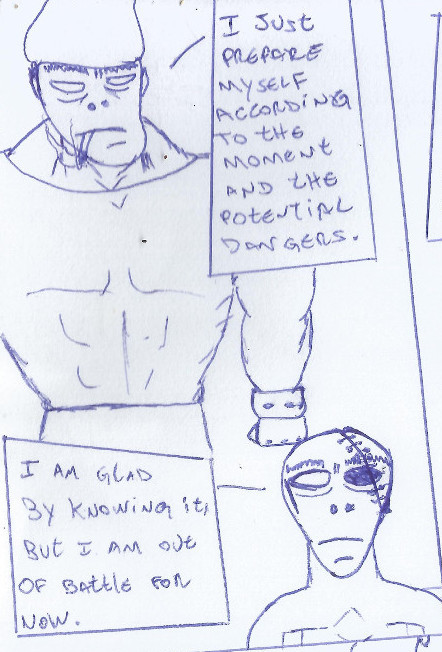 I JUST
PREPARE
MYSELF
ACCORDING
TO THE
MOMENT
AND THE
POTENTIAL
DANGERS.
I AM GLAD
BY KNOWING it,
BUT I AM OUT
OF BATTLE FOR
NOW.